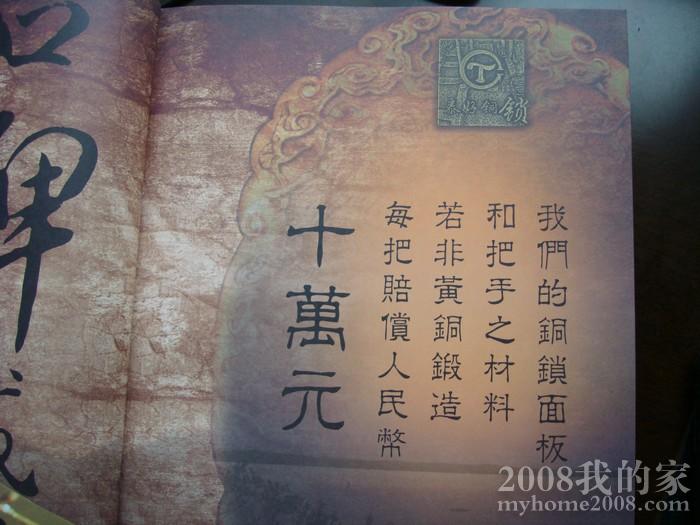 泰好銅鎖
我們的銅鎖面板
和把手之材料
若非黃銅鍛造
每把賠償人民幣
十萬元
2008我的家
myhome2008.com